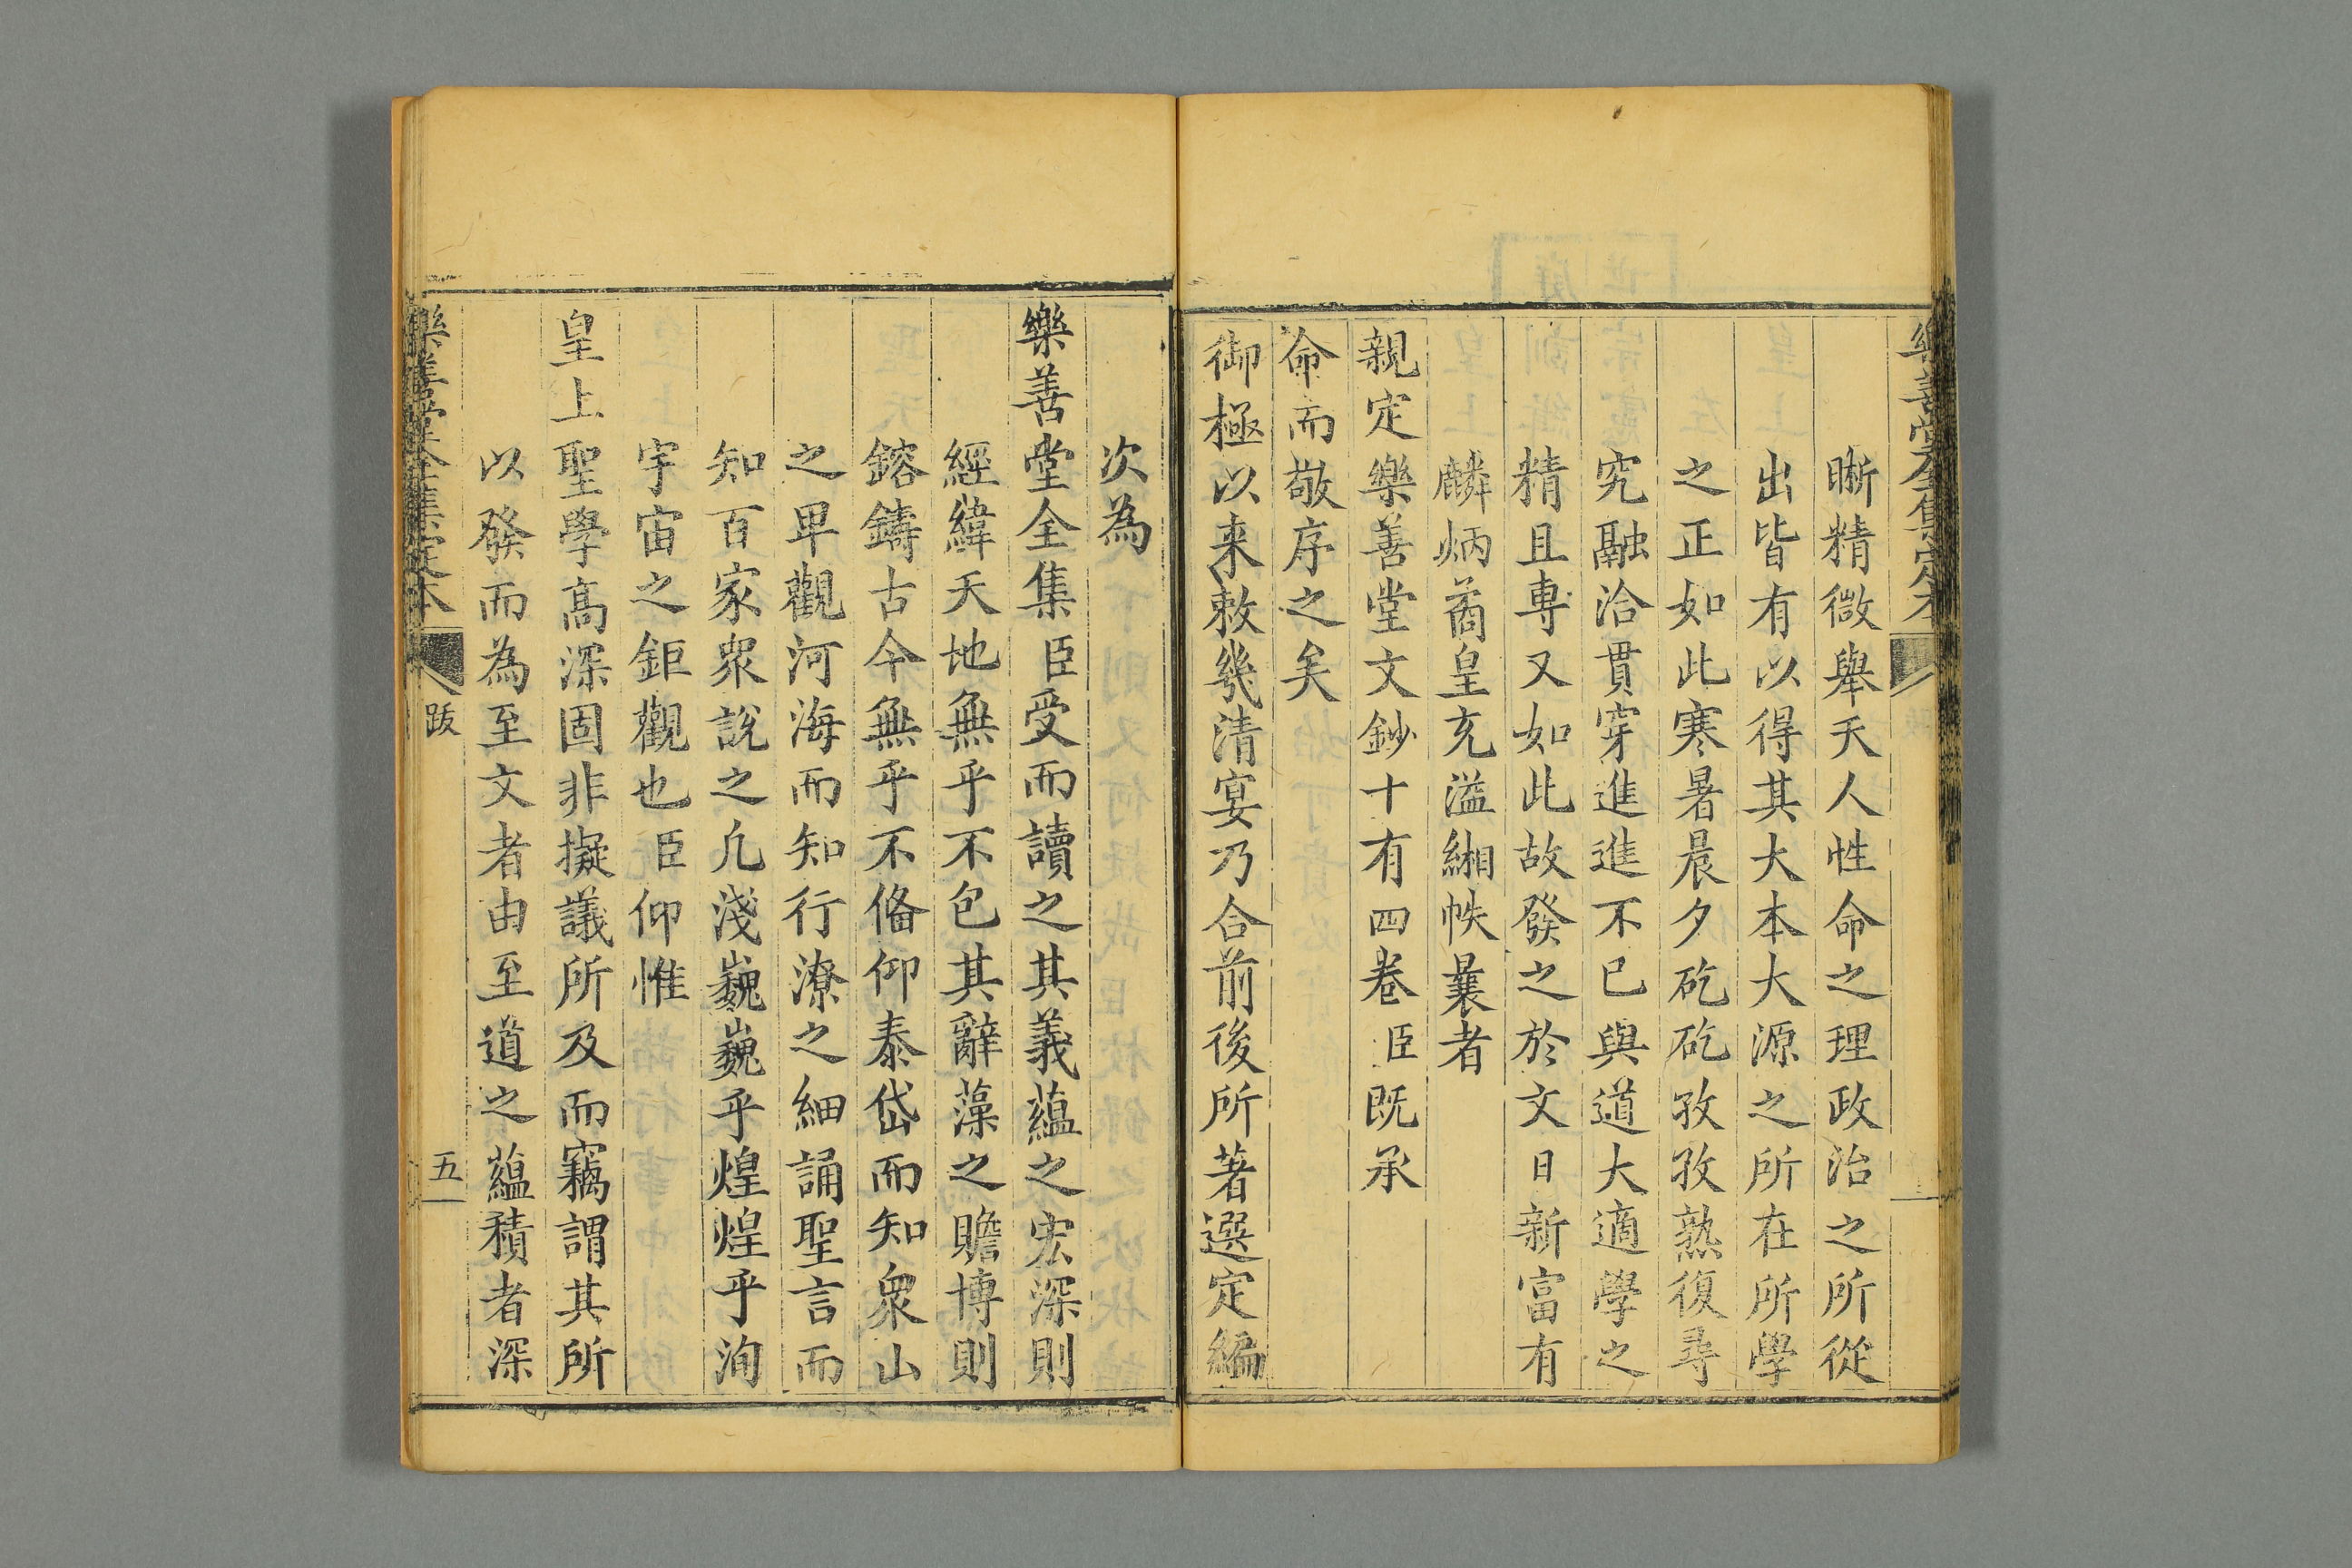 樂善堂全集定本
晰精微舉天人性命之理政治之所從
出皆有以得其大本大源之所在所學
之正如此寒暑晨夕矻矻孜孜熟復尋
究融洽貫穿進進不已與道大適學之
精且專又如此故發之於文日新富有
麟炳蔚皇充溢緗帙曩者
親定樂善堂文鈔十有四卷臣既承
命而敬序之矣
御極以来敕幾清宴乃合前後所著選定編
次為
樂善堂全集臣受而讀之其義蘊之宏深則
經緯天地無乎不包其辭藻之贍博則
鎔鑄古今無乎不俻仰泰岱而知衆山
之卑觀河海而知行潦之細誦聖言而
知百家衆說之凢淺巍巍乎煌煌乎洵
宇宙之鉅觀也臣仰惟
皇上聖學髙深固非擬議所及而竊謂其所
以發而為至文者由至道之蘊積者深
樂善堂全集定本 跋 五